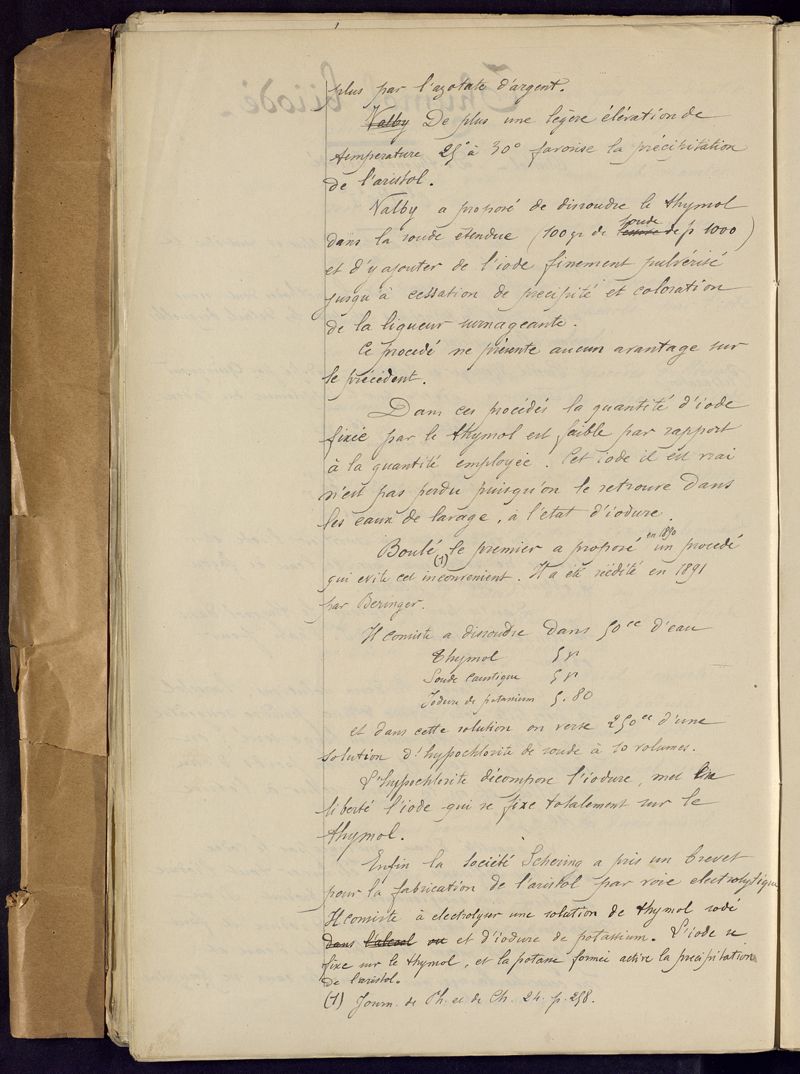 plus par l'azotate d'argent.
Valby De plus une légère élévation de
température 25° à 30° favorise la précipitation
de l'aristol.
Valby a proposé de dissoudre le thymol
dans la soude étendue (100 gr de soude de p 1000)
et d'y ajouter de l'iode finement pulvérisé
jusqu'à cessation de précipité et coloration
de la liqueur surnageante.
Ce procédé ne présente aucun avantage sur
le précédent.
Dans ces procédés la quantité d'iode
fixée par le thymol est faible par rapport
à la quantité employée. Cet iode il est vrai
n'est pas perdu puisqu'on le retrouve dans
les eaux de lavage, à l'état d'iodure.
Boulé (1) le premier a proposé en 1890 un procédé
qui evite cet inconvenient. Il a été réédité en 1891
par Beringer.
Il consiste a dissoudre dans 50 cc d'eau
Thymol 5 gr
Soude caustique 5 gr
Iodure de potassium 5.80
et dans cette solution on verse 250 cc d'une
solution d'hypochlorite de soude à 10 volumes.
L'hypochlorite décompose l'iodure, met en
liberté l'iode qui se fixe totalement sur le
thymol.
Enfin la société Schering a pris un brevet
pour la fabrication de l'aristol par voie electrolytique
Il consiste à electrolyser une solution de thymol sodé
dans l'alcool ou et d'iodure de potassium. L'iode se
fixe sur le thymol, et la potasse formée active la précipitation
de l'aristol.
(1) Journ. de Ph. et de Ch. 24. p. 258.